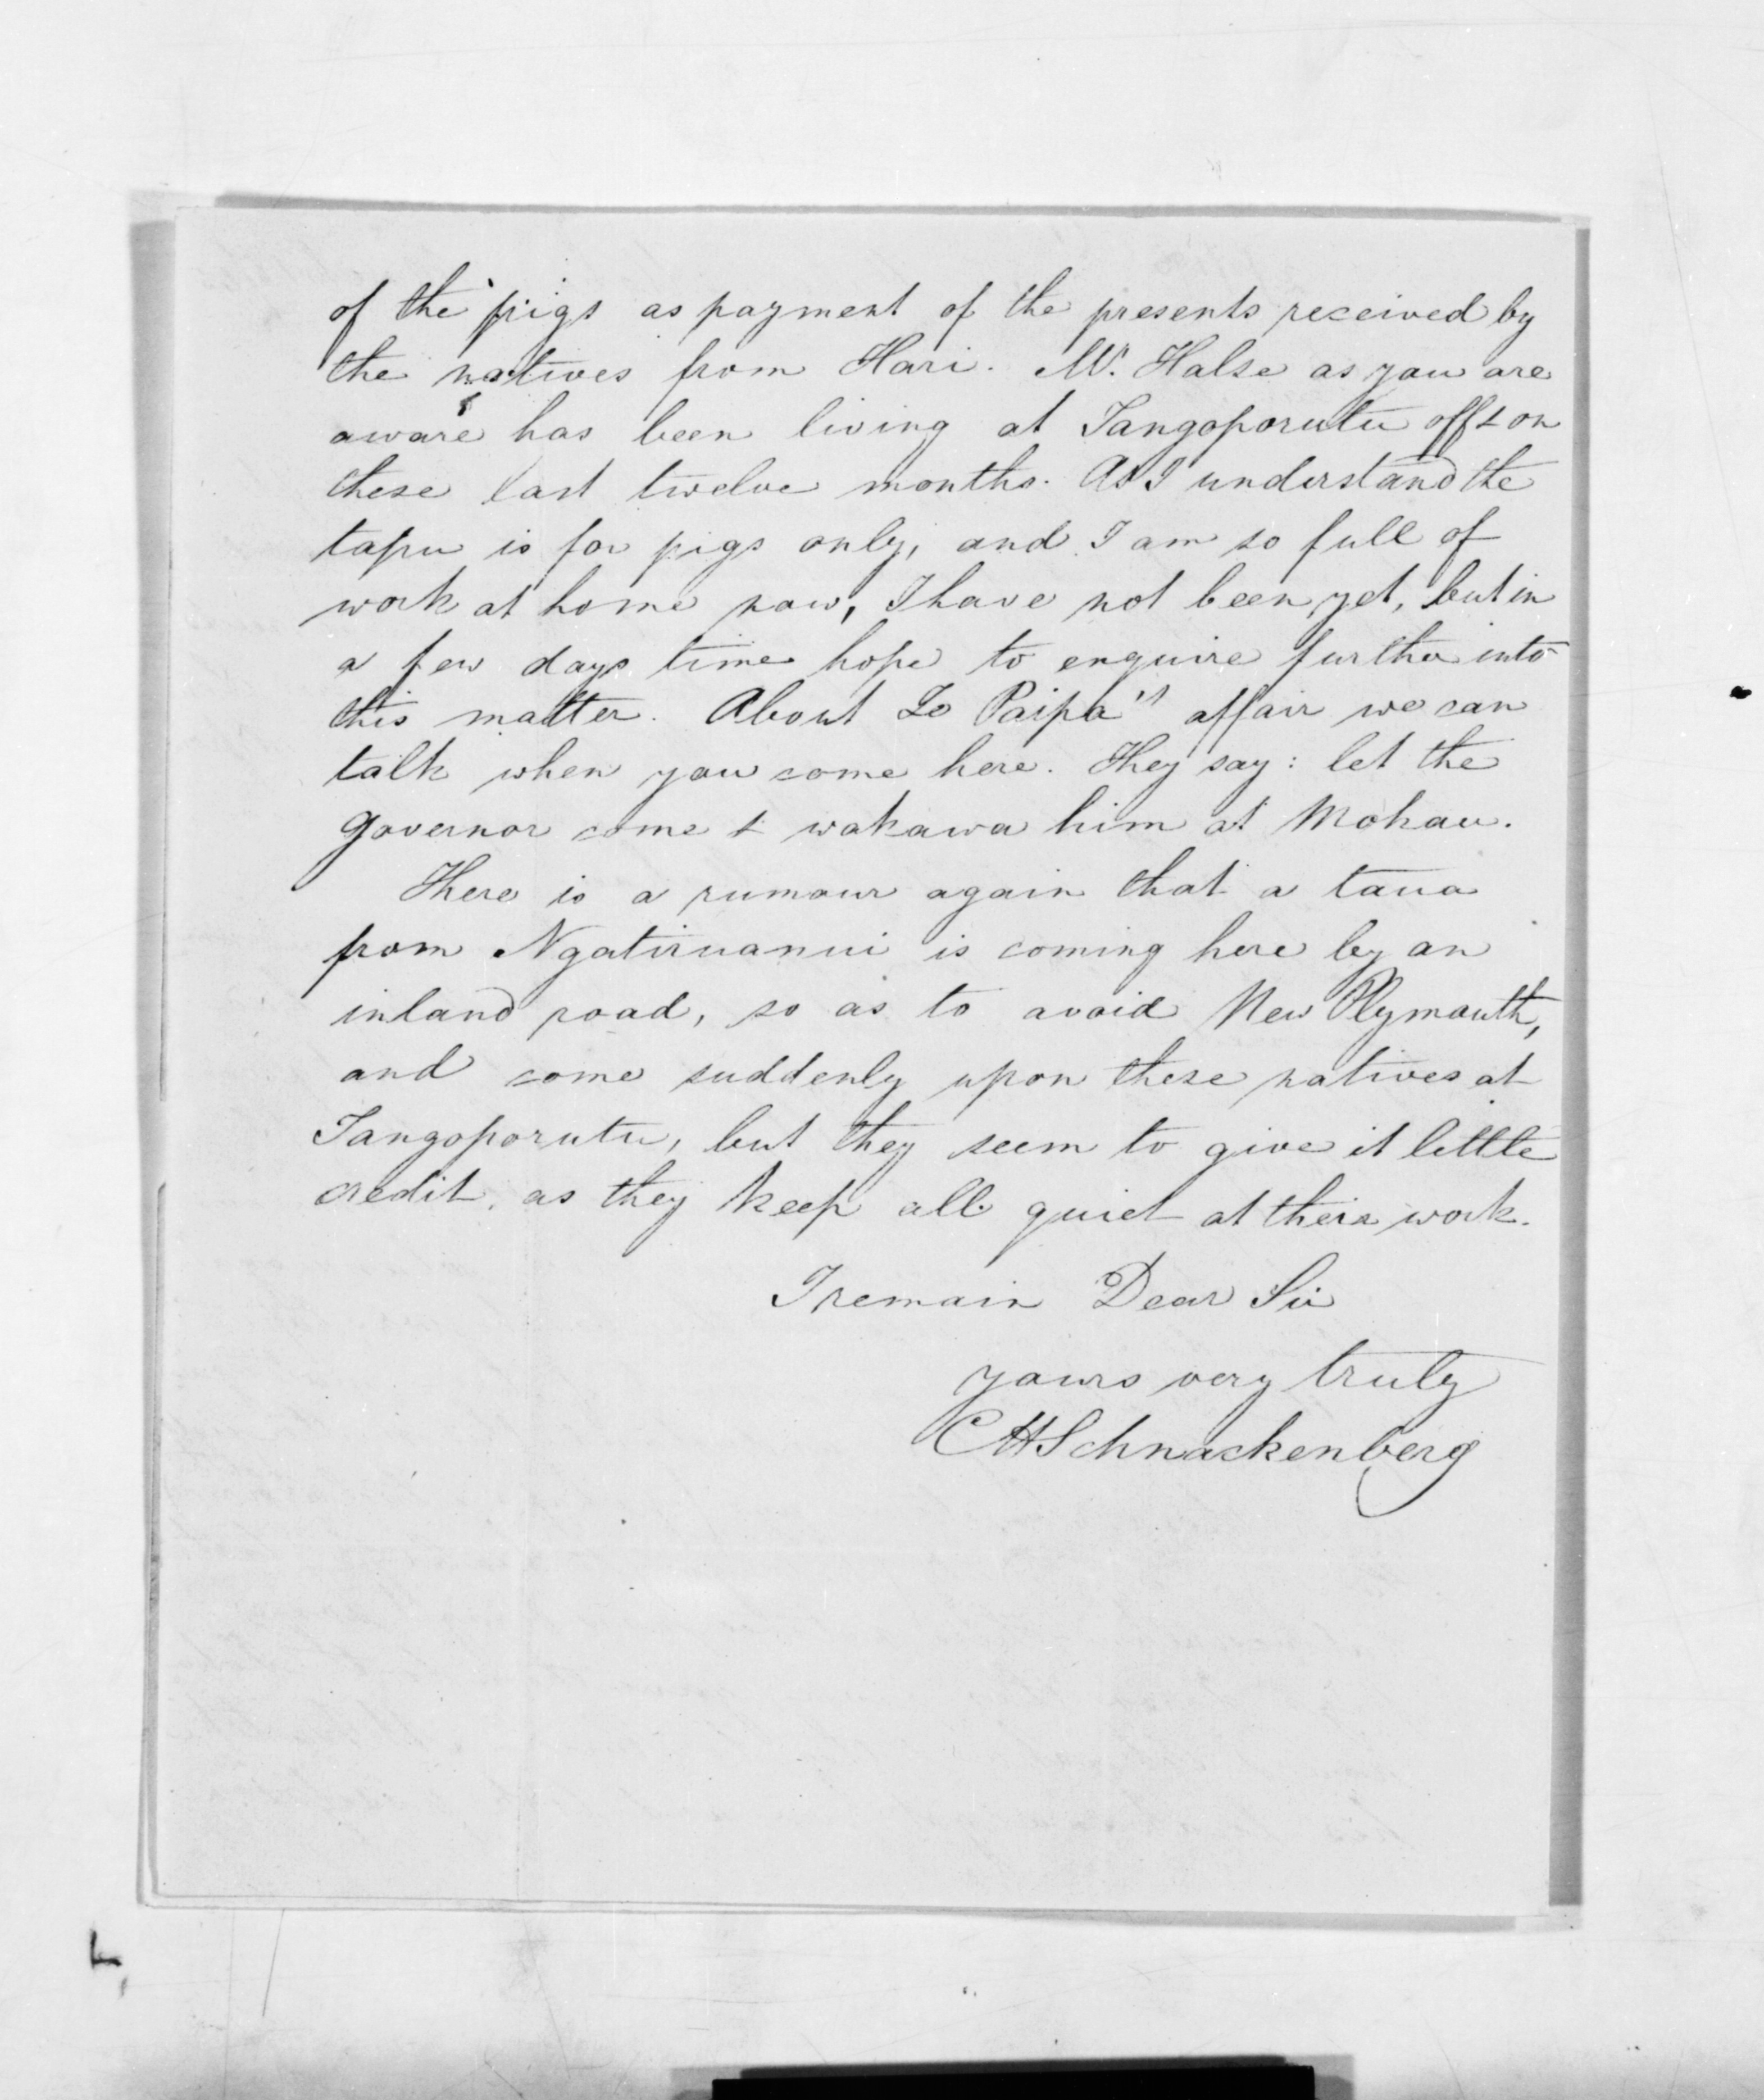 of the pigs as payment of the presents received by
the natives from Hari. Mr. Halse as you are
aware has been living at Tangoporutu off & on
these last twelve months. As I understand the
tapu is for pigs only, and I am so full of
work at home now, I have not been yet, but in
a few days time hope to enquire further into
this matter. About Te Paipa's affair we can
talk when you come here. They say: let the
governor come & wakawa him at Mokau.
There is a rumour again that a taua
from Ngatiruanui is coming here by an
inland road, so as to avoid New Plymouth,
and come suddenly upon these natives at
Tangoporutu, but they seem to give it little
credit, as they keep all quiet at their work.
I remain Dear Sir
yours very truly
CHSchnackenberg